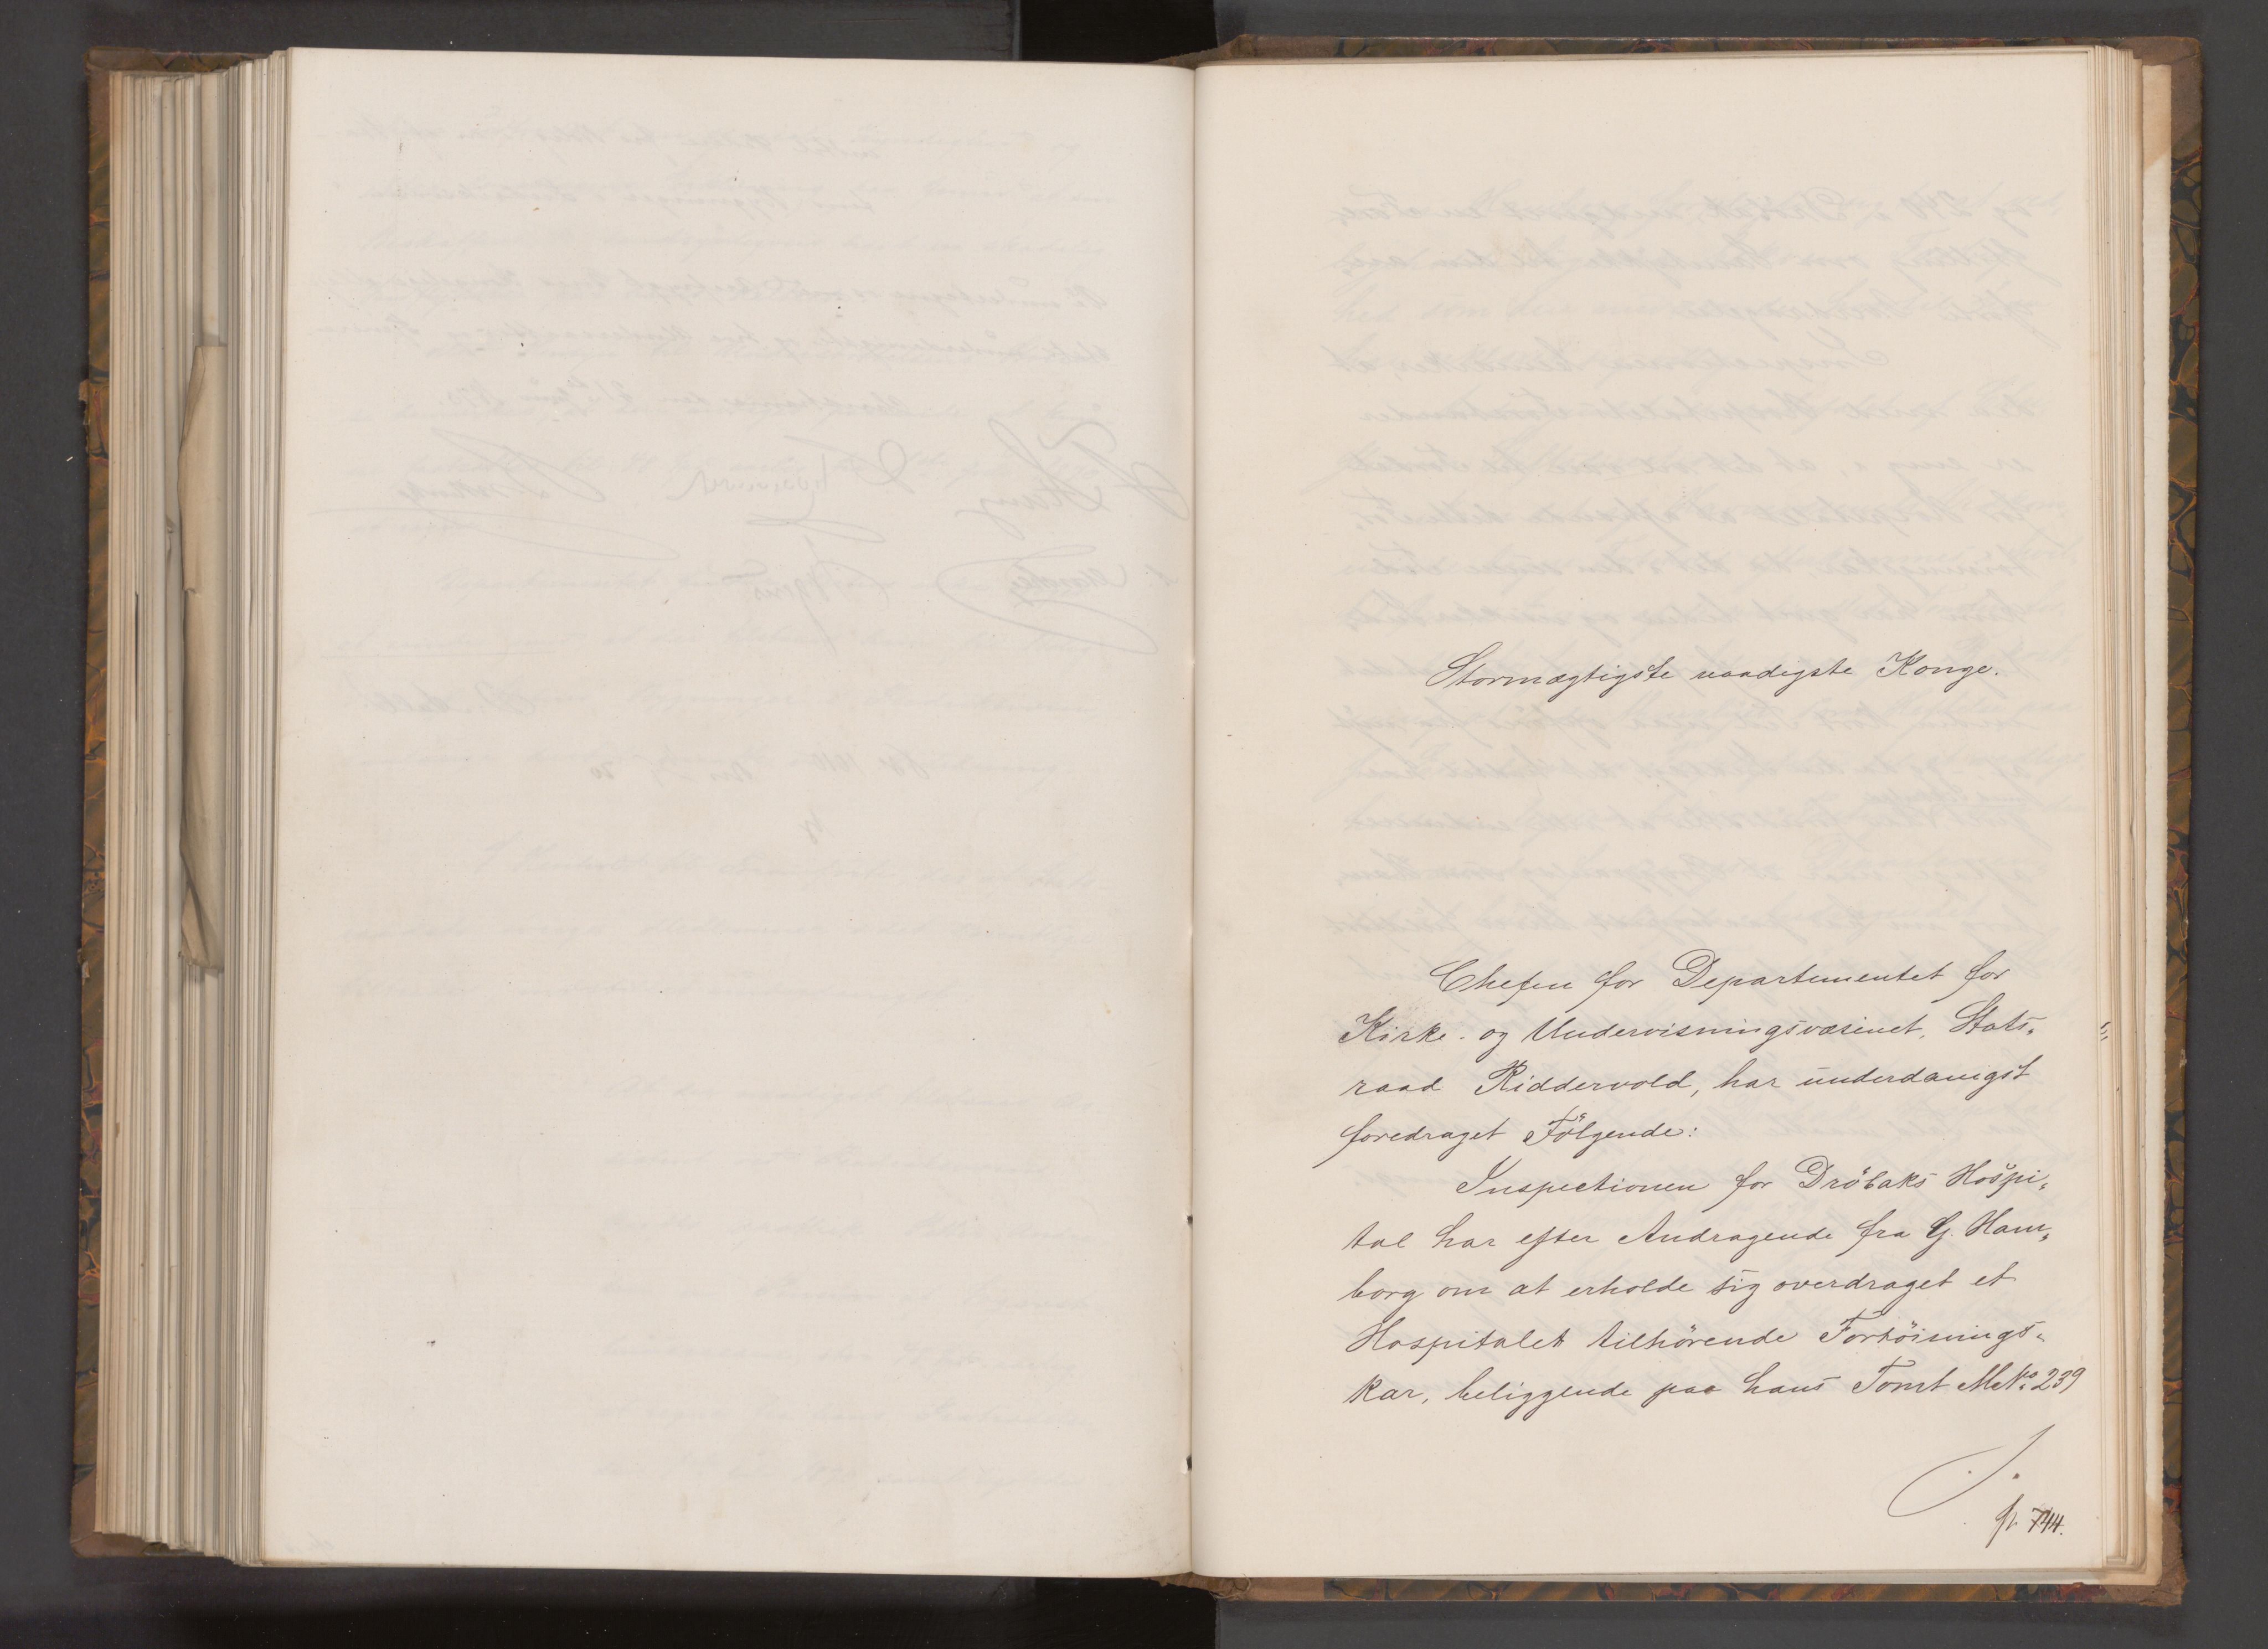 Stormægtigste naadigste Konge.
Chefen for Departementet for
Kirke- og Undervisningsvæsenet, Stats-
raad Riddervold, har underdanigst
foredraget Følgende:
Inspectionen for Drøbaks Hospi-
tal har efter Andragende fra G. Ham-
borg om at erholde sig overdraget et
Hospitalet tilhørende Fortøinings-
kar, beliggende paa hans Tomt MNo. 239
744.